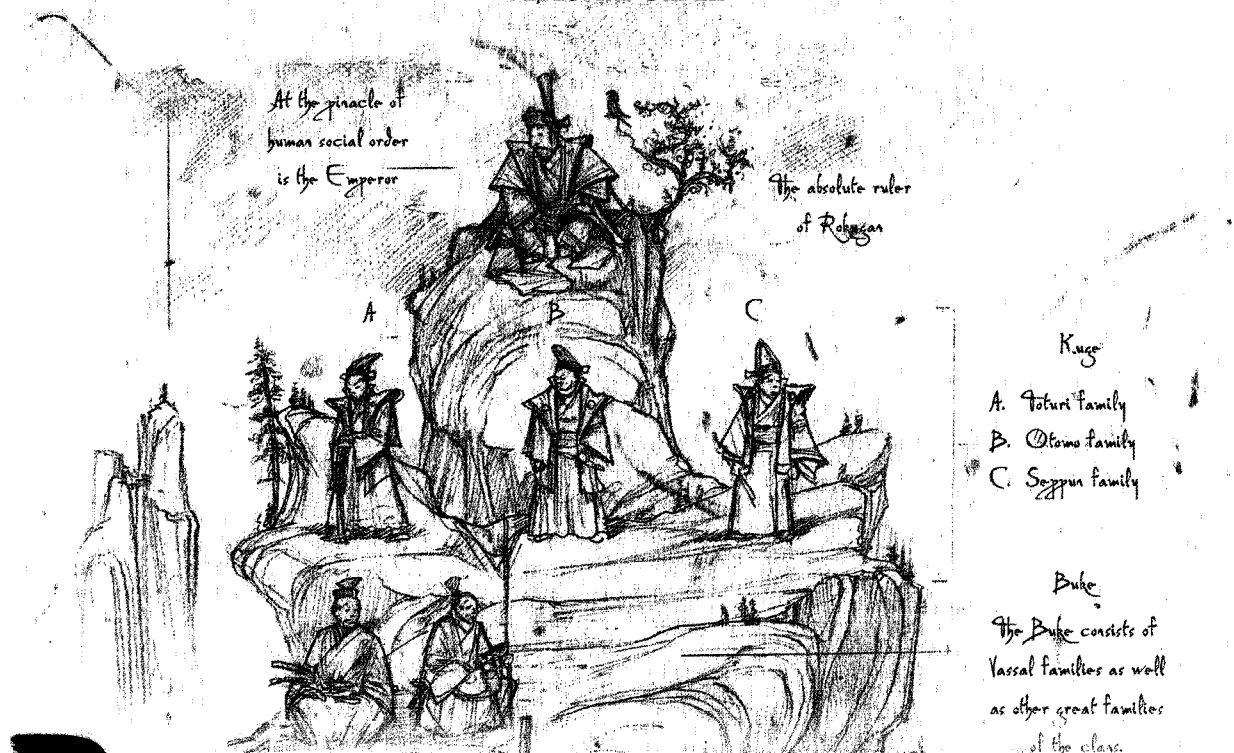 At the pinacle of
human social order
is the Emperor
The absolute ruler
of Rokugan
A
B
C
Kuge
A. Toturi family
B. Otomo family
C. Seppun family
Buke
The Buke consists of
Vassal families as well
as other great families
of the clans.